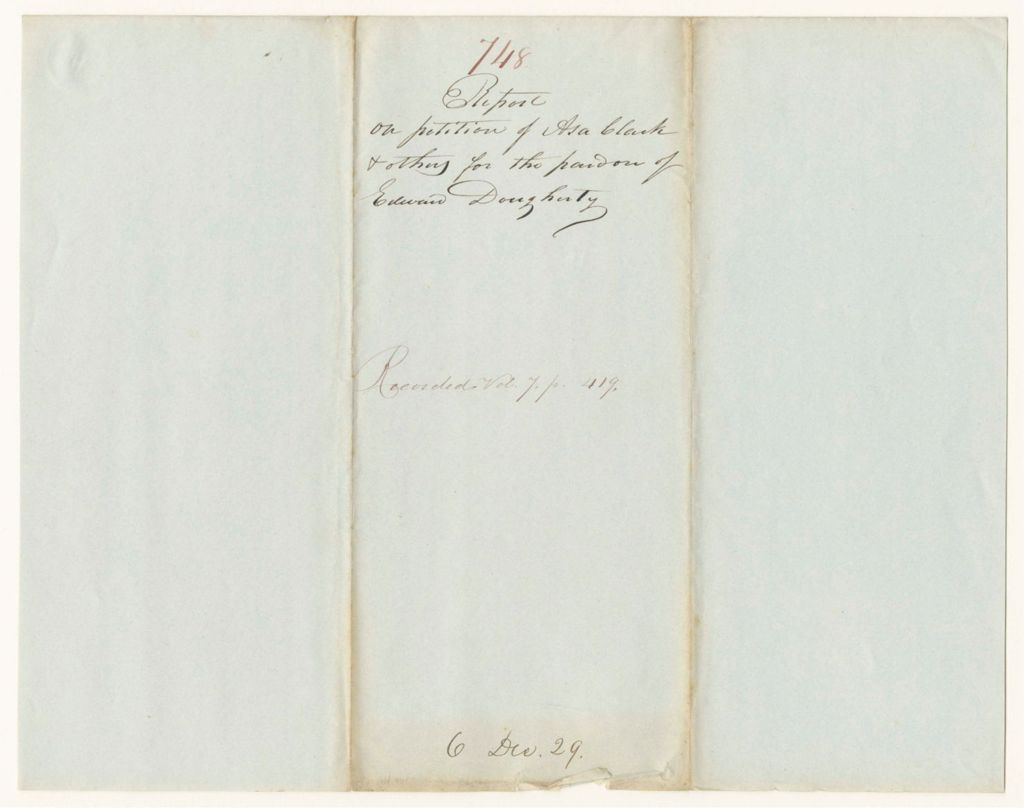 748
Report
on petition of Asa Clark
& others for the pardon of
Edward Dougherty
Recorded Vol. 7. p. 419.
6 Dec. 29.